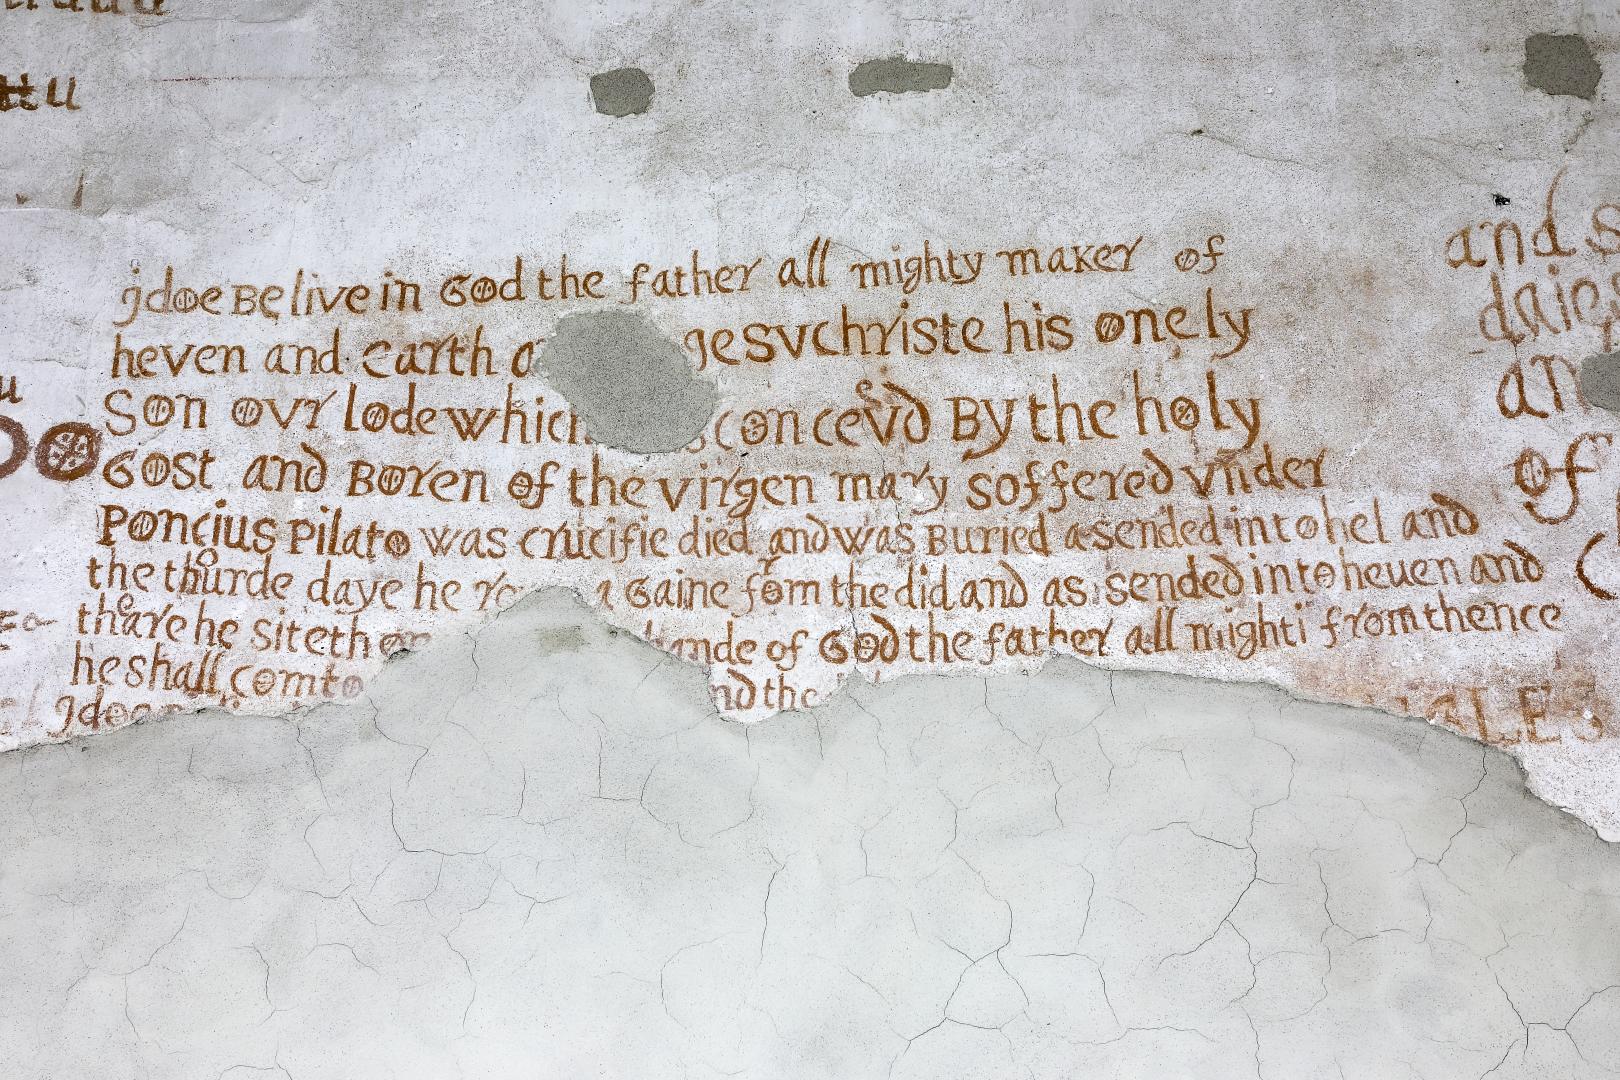 jdoe Belive in God the father all mighty maker of
heven and earth gesvchriste his onely
Son ovr lode which concevd By the holy
Gost and Boren of the virgen mary soffered vnder
Poncius Pilato was crucifie died and was Buried asended into hel and
the thourde daye he a Gaine from the did and as sended into heuen and
thare he siteth hande of God the father all mighti from thence
he shall com to and the
jdoe
and
daies
an
of